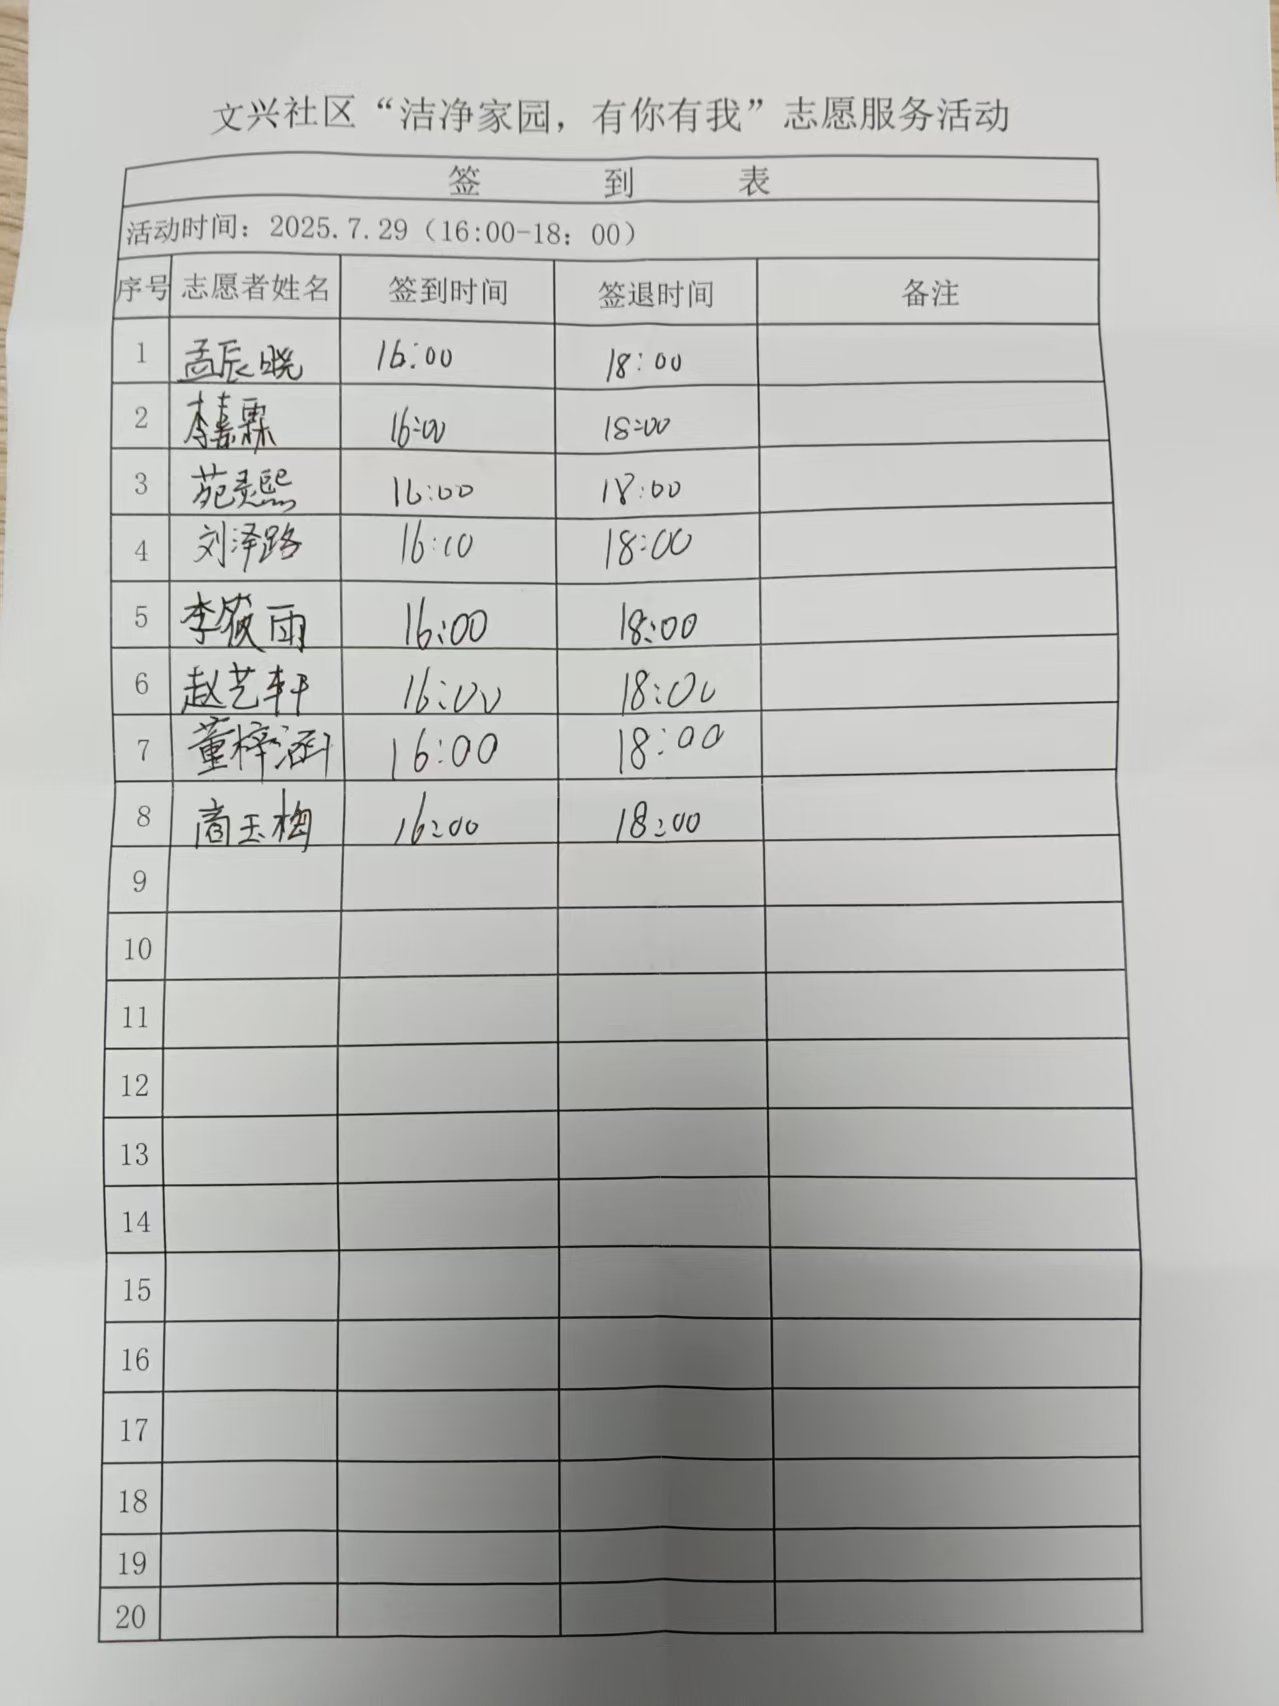 文兴社区“洁净家园，有你有我”志愿服务活动
签 到 表
活动时间：2025.7.29（16:00-18：00）
序号 志愿者姓名 签到时间 签退时间 备注
1 孟辰晓 16:00 18:00
2 李嘉霖 16:00 18:00
3 苑灵熙 16:00 18:00
4 刘泽路 16:00 18:00
5 李筱雨 16:00 18:00
6 赵艺轩 16:00 18:00
7 董梓涵 16:00 18:00
8 商玉梅 16:00 18:00
9
10
11
12
13
14
15
16
17
18
19
20